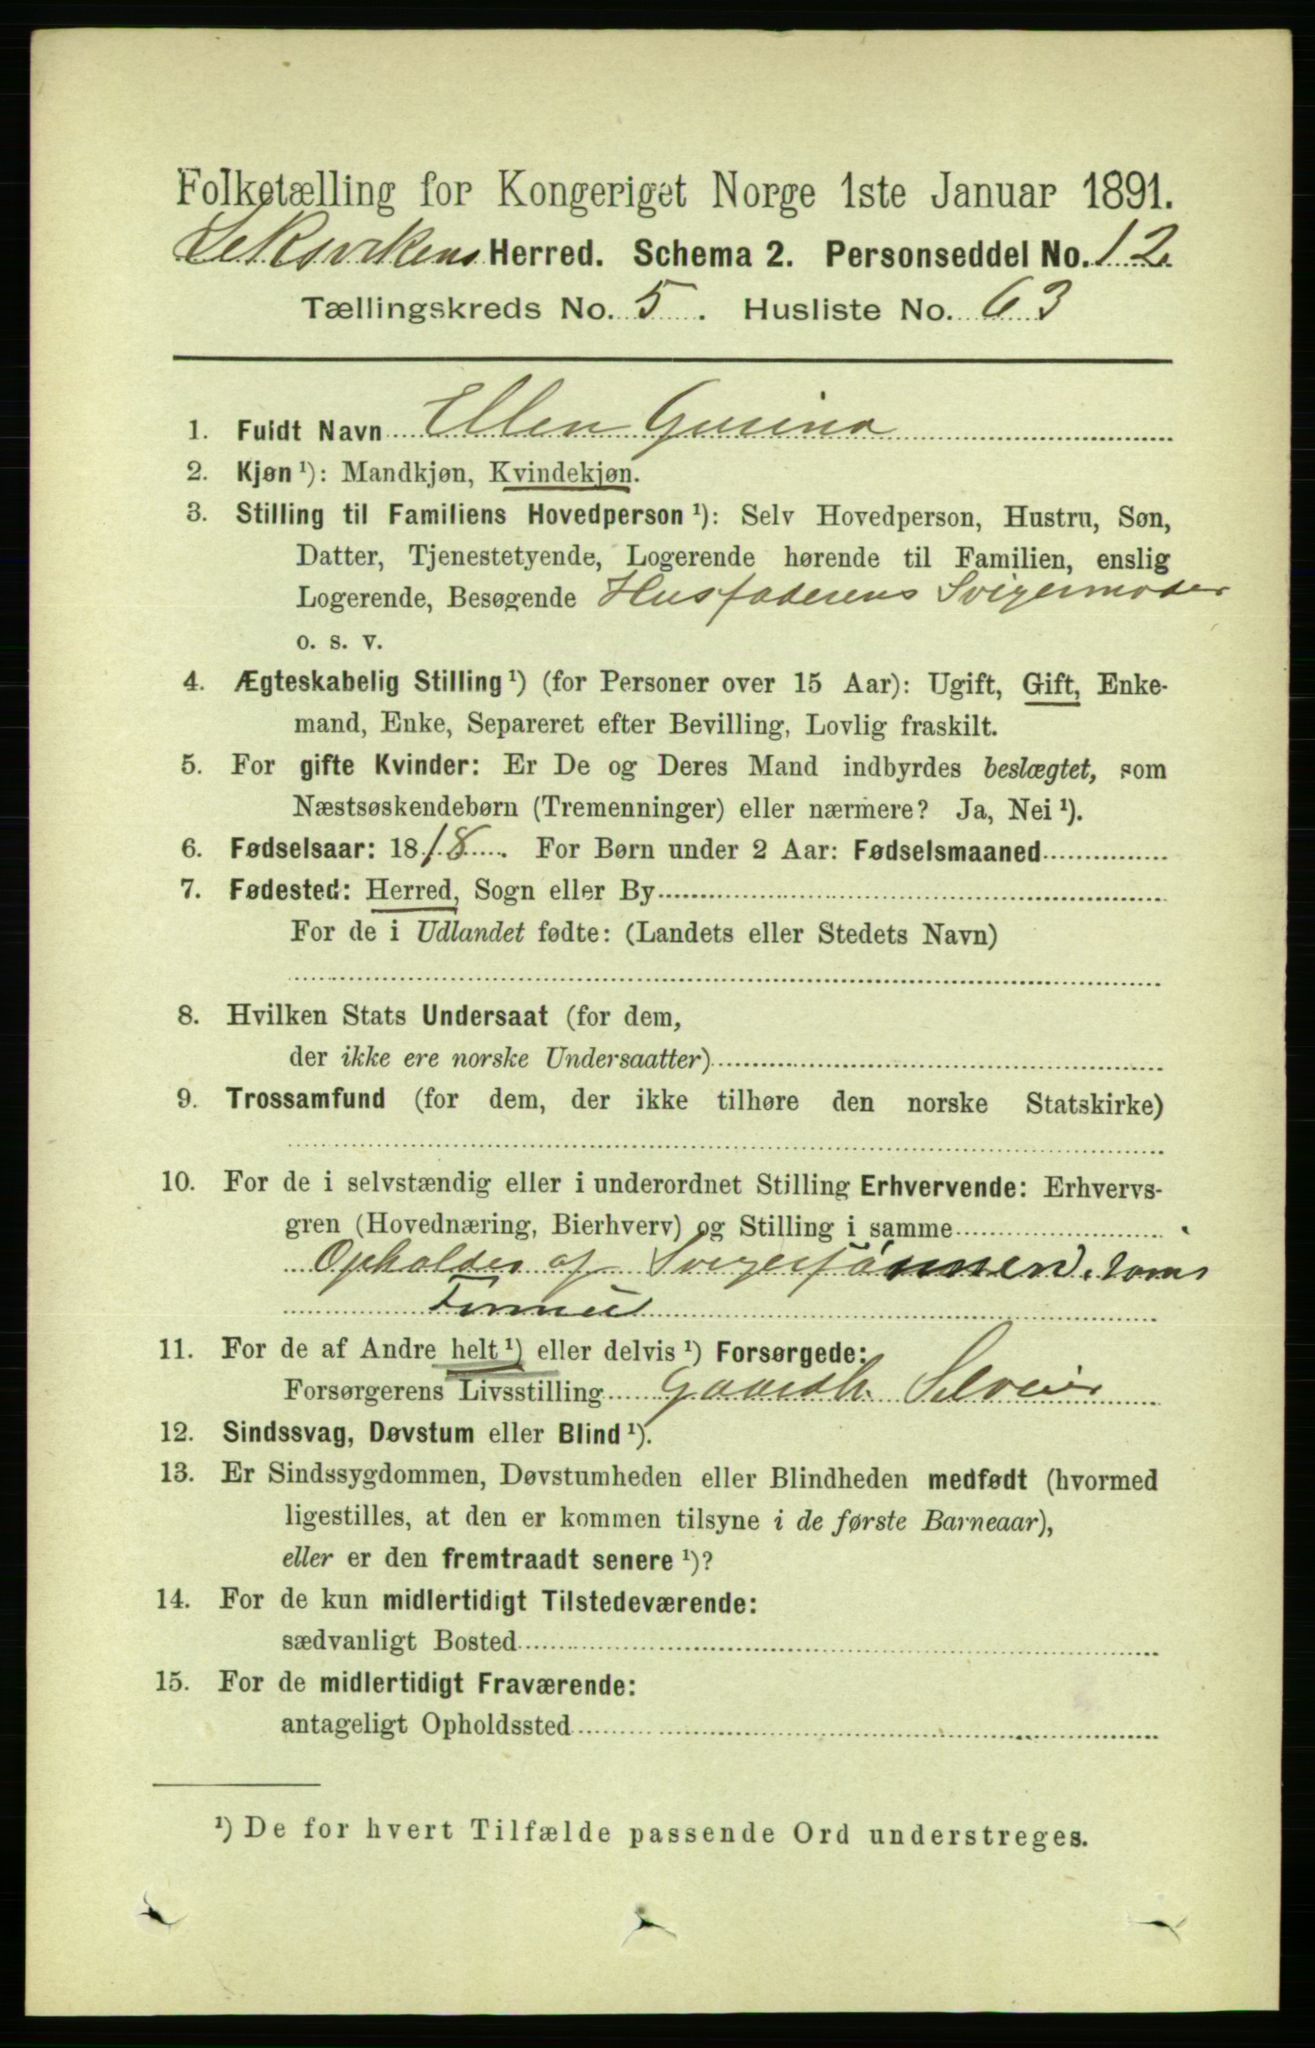 Folketælling for Kongeriget Norge 1ste Januar 1891.
Leksvikens Herred. Schema 2. Personseddel No. 12.
Tællingskreds No. 5. Husliste No. 63
1. Fuldt Navn Ellen Gurina
2. Kjøn ¹): Mandkjøn, Kvindekjøn.
3. Stilling til Familiens Hovedperson ¹): Selv Hovedperson, Hustru, Søn,
Datter, Tjenestetyende, Logerende hørende til Familien, enslig
Logerende, Besøgende Husfaderens Svigermoder
o. s. v.
4. Ægteskabelig Stilling ¹) (for Personer over 15 Aar): Ugift, Gift, Enke-
mand, Enke, Separeret efter Bevilling, Lovlig fraskilt.
5. For gifte Kvinder: Er De og Deres Mand indbyrdes beslægtet, som
Næstsøskendebørn (Tremenninger) eller nærmere? Ja, Nei ¹).
6. Fødselsaar: 1818. For Børn under 2 Aar: Fødselsmaaned
7. Fødested: Herred, Sogn eller By
For de i Udlandet fødte: (Landets eller Stedets Navn)
8. Hvilken Stats Undersaat (for dem,
der ikke ere norske Undersaatter)
9. Trossamfund (for dem, der ikke tilhøre den norske Statskirke)
10. For de i selvstændig eller i underordnet Stilling Erhvervende: Erhvervs-
gren (Hovednæring, Bierhverv) og Stilling i samme
Opholdes af Svigersønnen, som
11. For de af Andre helt ¹) eller delvis ¹) Forsørgede:
Forsørgerens Livsstilling Gaardb. Selveier
12. Sindssvag, Døvstum eller Blind ¹).
13. Er Sindssygdommen, Døvstumheden eller Blindheden medfødt (hvormed
ligestilles, at den er kommen tilsyne i de første Barneaar),
eller er den fremtraadt senere ¹)?
14. For de kun midlertidigt Tilstedeværende:
sædvanligt Bosted
15. For de midlertidigt Fraværende:
antageligt Opholdssted
¹) De for hvert Tilfælde passende Ord understreges.